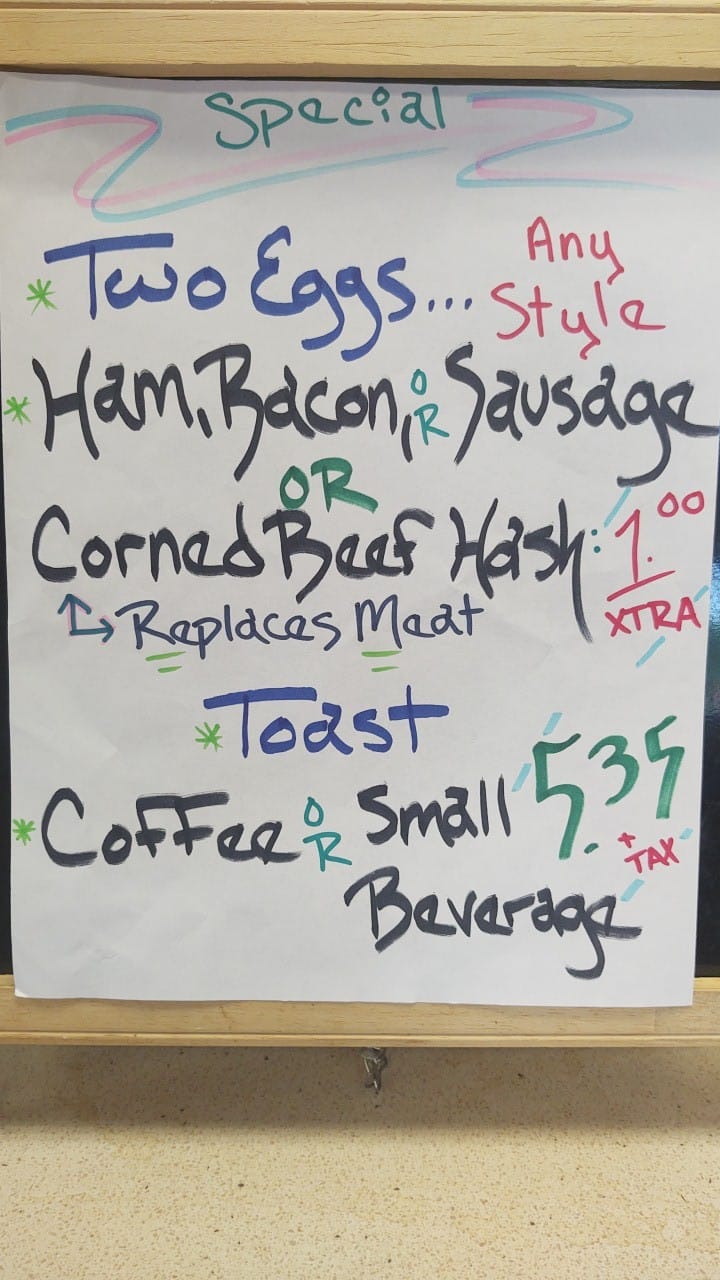 Special
* Two Eggs... Any Style
* Ham, Bacon, OR Sausage
OR
Corned Beef Hash: 1.00 XTRA
Replaces Meat
* Toast
* Coffee OR Small 5.35 + TAX
Beverage